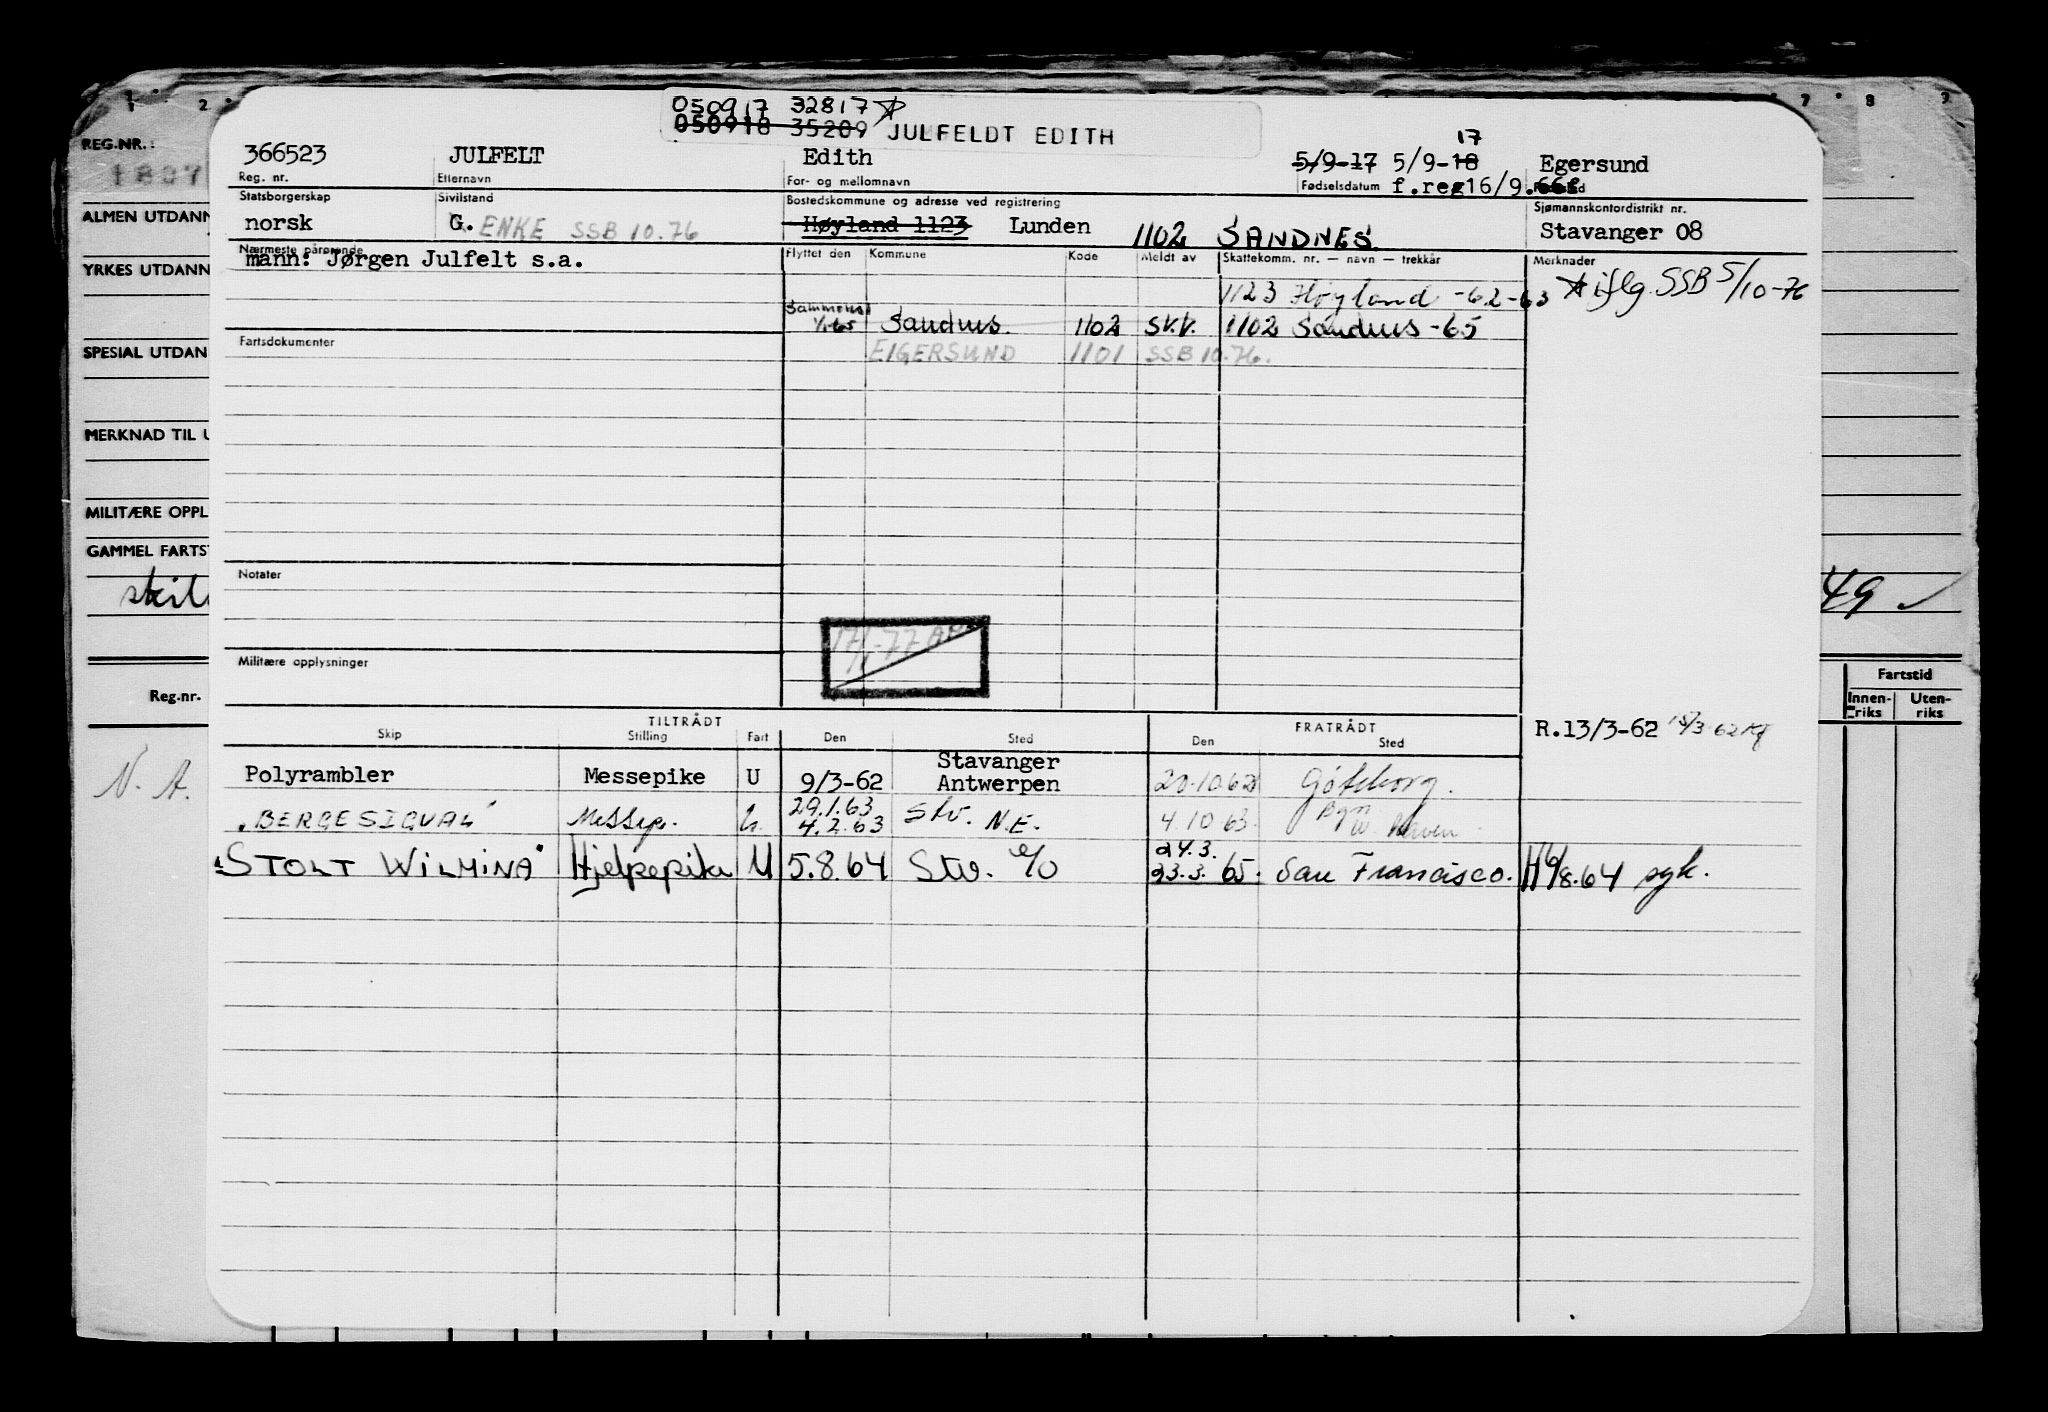 1 2 7 8 9
050917 32817
050918 35209 JULFELDT EDITH
REG.NR.:
366523 JULFELT Edith 5/9-17 5/9-18 17 Egersund
Reg. nr. Etternavn For- og mellomnavn Fødselsdatum f.reg16/9.
ALMEN UTDANN
Statsborgerskap Sivilstand Bostedskommune og adresse ved registrering Sjømannskontordistrikt nr.
norsk G. ENKE SSB 10.76 Høyland 1123 Lunden 1102 SANDNES Stavanger 08
Nærmeste pårørende Flyttet den Kommune Kode Meldt av Skattekomm. nr. — navn — trekkår Merknader
mann: Jørgen Julfelt s.a.
YRKES UTDANN
1123 Høyland -62-63 iflg. SSB 5/10-76
1/1-65 Sandnes 1102 SV.V. 1102 Sandnes -65
Fartsdokumenter EIGERSUND 1101 SSB 10.76.
SPESIAL UTDAN
MERKNAD TIL U
MILITÆRE OPPL
GAMMEL FARTST
Notater
49
17/1-77
Militære opplysninger
Fartstid
Reg.nr. Innen-riks Uten-riks
TILTRÅDT FRATRÅDT R.13/3-62
Skip Stilling Fart Den Sted Den Sted
Polyrambler Messepike U 9/3-62 Stavanger Antwerpen 20.10.62 Göteborg.
N. A.
"BERGESIGVAL" Messep. U. 29.1.63 4.2.63 Stv. N.E. 4.10 63.
"STOLT WILMINA" Hjelpepike U 5.8.64 Stv. 24.3. 23.3. 65. San Francisco.